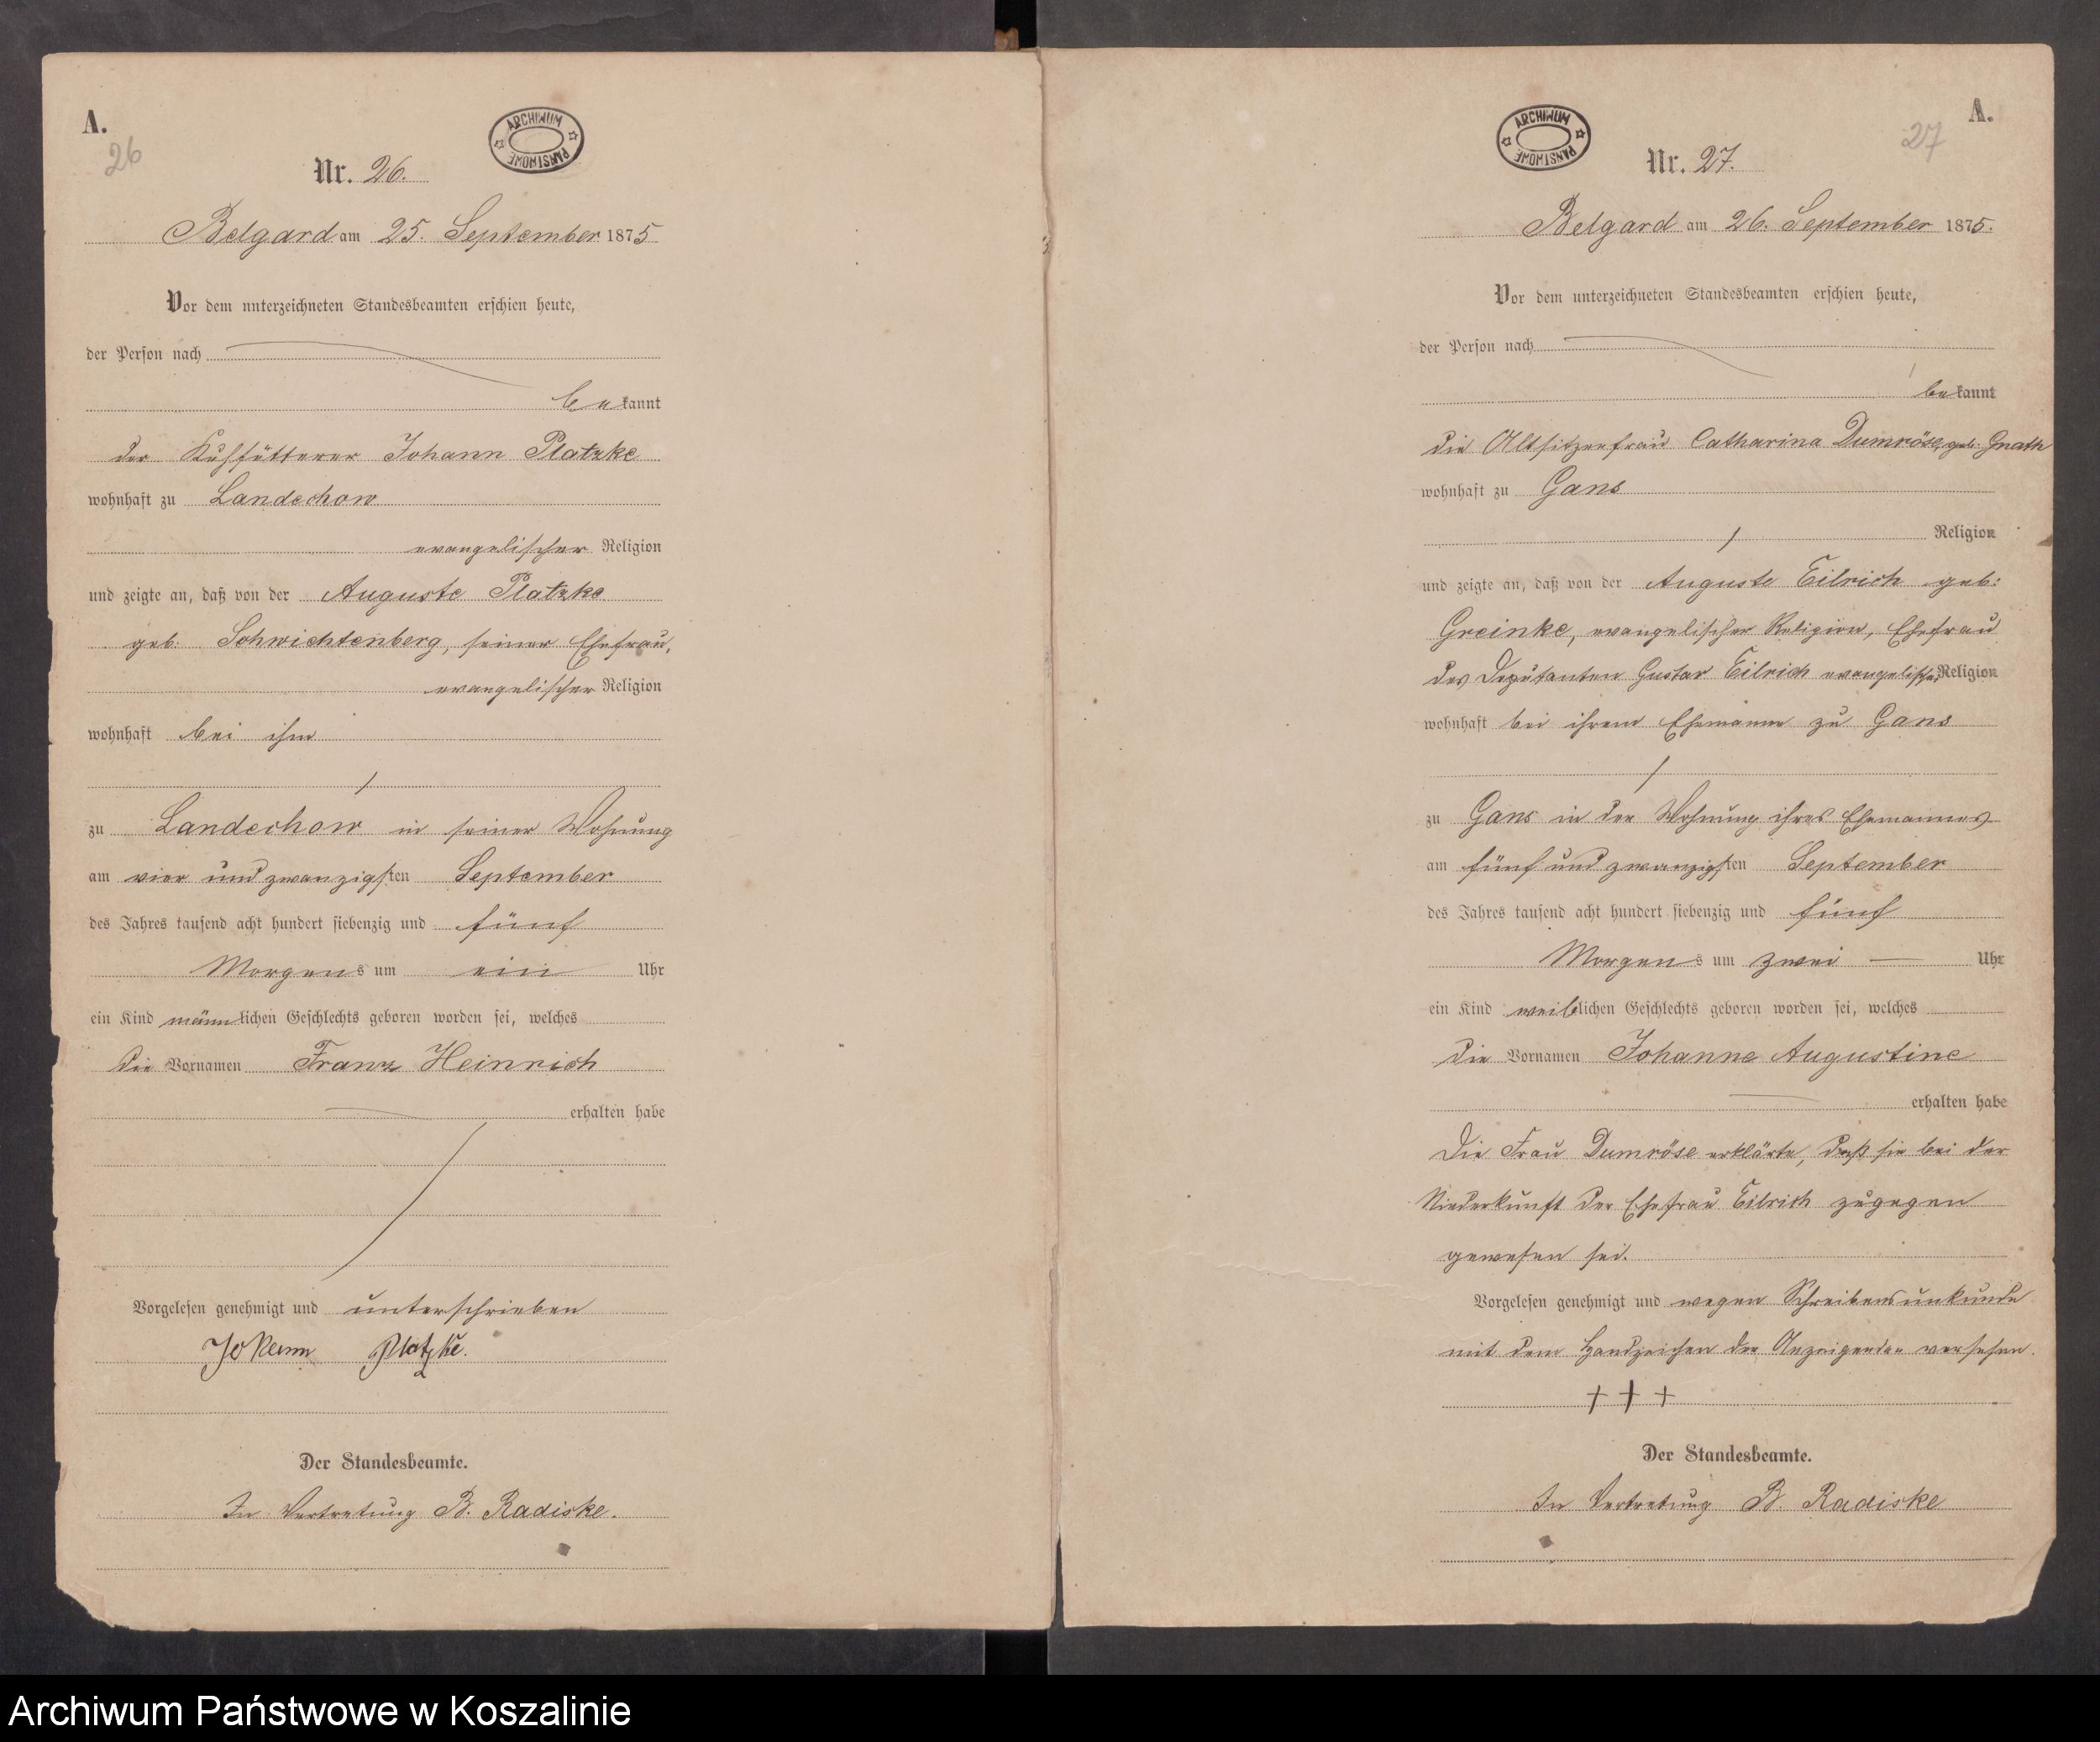 A.
26
ARCHIWUM PAŃSTWOWE
Nr. 26.
Belgard am 25. September 1875
Vor dem unterzeichneten Standesbeamten erschien heute,
der Person nach
bekannt
der Kuhfütterer Johann Platzke
wohnhaft zu Landechow
evangelischer Religion
und zeigte an, daß von der Auguste Platzke
geb: Schwichtenberg, seiner Ehefrau,
evangelischer Religion
wohnhaft bei ihm
zu Landechow in seiner Wohnung
am vier und zwanzigsten September
des Jahres tausend acht hundert siebenzig und fünf
Morgens um ein Uhr
ein Kind männlichen Geschlechts geboren worden sei, welches
die Vornamen Franz Heinrich
erhalten habe
Vorgelesen genehmigt und unterschrieben
Johann Platzke.
Der Standesbeamte.
In Vertretung B. Radiske.
A.
27
ARCHIWUM PAŃSTWOWE
Nr. 27.
Belgard am 26. September 1875.
Vor dem unterzeichneten Standesbeamten erschien heute,
der Person nach
bekannt
die Altsitzerfrau Catharina Dumröse, geb. Gnath
wohnhaft zu Gans
Religion
und zeigte an, daß von der Auguste Eilrich geb:
Greinke, evangelischer Religion, Ehefrau
des Deputanten Gustav Eilrich evangelischer Religion
wohnhaft bei ihrem Ehemanne zu Gans
zu Gans in der Wohnung ihres Ehemannes
am fünf und zwanzigsten September
des Jahres tausend acht hundert siebenzig und fünf
Morgens um zwei — Uhr
ein Kind weiblichen Geschlechts geboren worden sei, welches
die Vornamen Johanne Augustine
erhalten habe
Die Frau Dumröse erklärte, daß sie bei der
Niederkunft der Ehefrau Eilrich zugegen
gewesen sei.
Vorgelesen genehmigt und wegen Schreibensunkunde
mit dem Handzeichen der Anzeigenden versehen.
+ + +
Der Standesbeamte.
In Vertretung B. Radiske
Archiwum Państwowe w Koszalinie